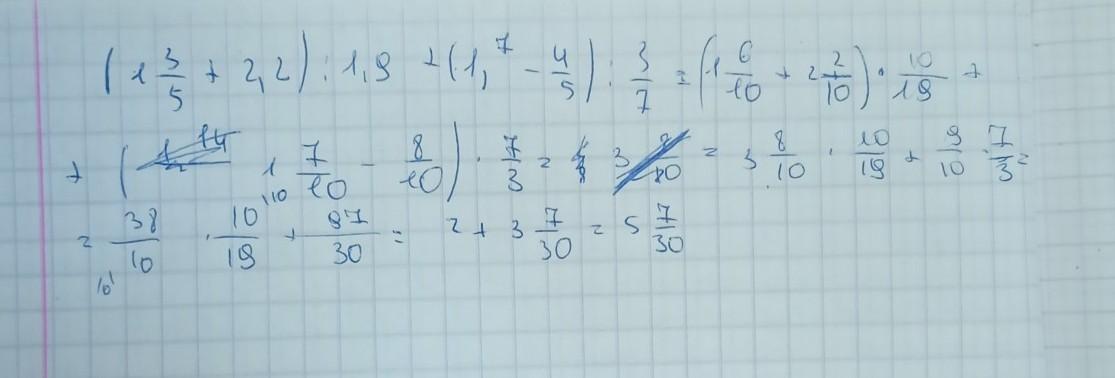 (1 3/5 + 2,2) : 1,9 + (1,7 - 4/5) : 3/7 = (1 6/10 + 2 2/10) · 10/19 +
+ (1 7/10 - 8/10) · 7/3 = 3 8/10 · 10/19 + 9/10 · 7/3 =
= 38/10 · 10/19 + 97/30 = 2 + 3 7/30 = 5 7/30